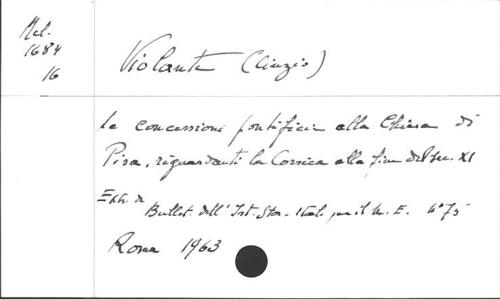 Mel.
1684
16
Violante (Cinzio)
Le concessioni pontificie alla Chiesa di
Pisa, riguardanti la Corsica alla fine del sec. XI
Extr. de
Bullet. dell' Ist. Stor. Ital. per il M. E. n° 75
Roma 1963